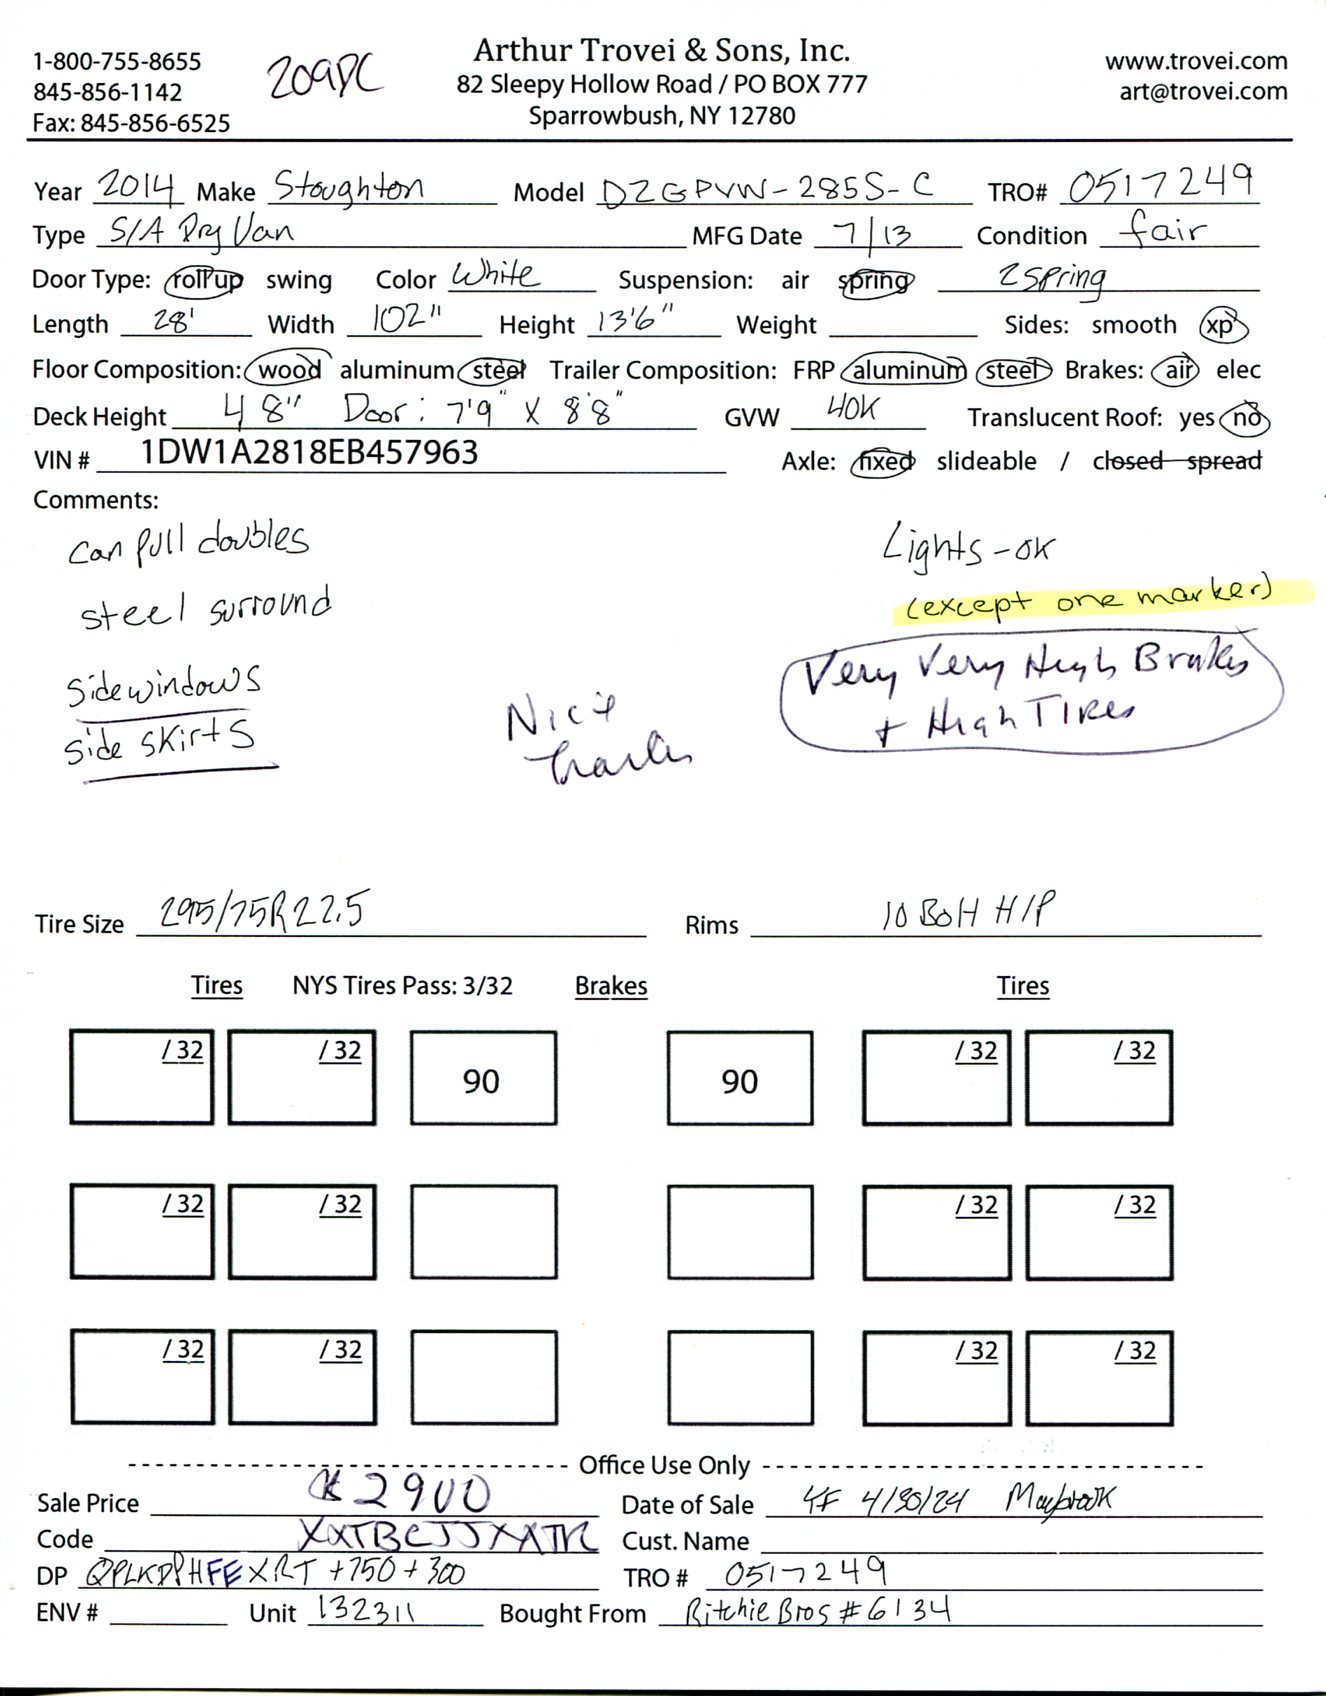 Arthur Trovei & Sons, Inc.
1-800-755-8655 209DC 82 Sleepy Hollow Road / PO BOX 777 www.trovei.com
845-856-1142 Sparrowbush, NY 12780 art@trovei.com
Fax: 845-856-6525
Year 2014 Make Stoughton Model DZGPVW-285S-C TRO# 0517249
Type S/A Dry Van MFG Date 7/13 Condition fair
Door Type: rollup swing Color White Suspension: air spring 2 spring
Length 28' Width 102" Height 13'6" Weight Sides: smooth xp
Floor Composition: wood aluminum steel Trailer Composition: FRP aluminum steel Brakes: air elec
Deck Height 48" Door: 7'9" X 8'8" GVW 40K Translucent Roof: yes no
VIN # 1DW1A2818EB457963 Axle: fixed slideable / closed spread
Comments:
can pull doubles Lights-ok
steel surround (except one marker)
sidewindows Very Very High Brakes
side skirts + High Tires
Nice
Tire Size 295/75R22.5 Rims 10 BoH H/P
Tires NYS Tires Pass: 3/32 Brakes Tires
/32 /32 90 90 /32 /32
/32 /32 /32 /32
/32 /32 /32 /32
Office Use Only
Sale Price 2900 Date of Sale 4/30/24 Maybrook
Code Cust. Name
DP QPLKDPHFEXRT +750+300 TRO # 0517249
ENV # Unit 132311 Bought From Ritchie Bros #6134